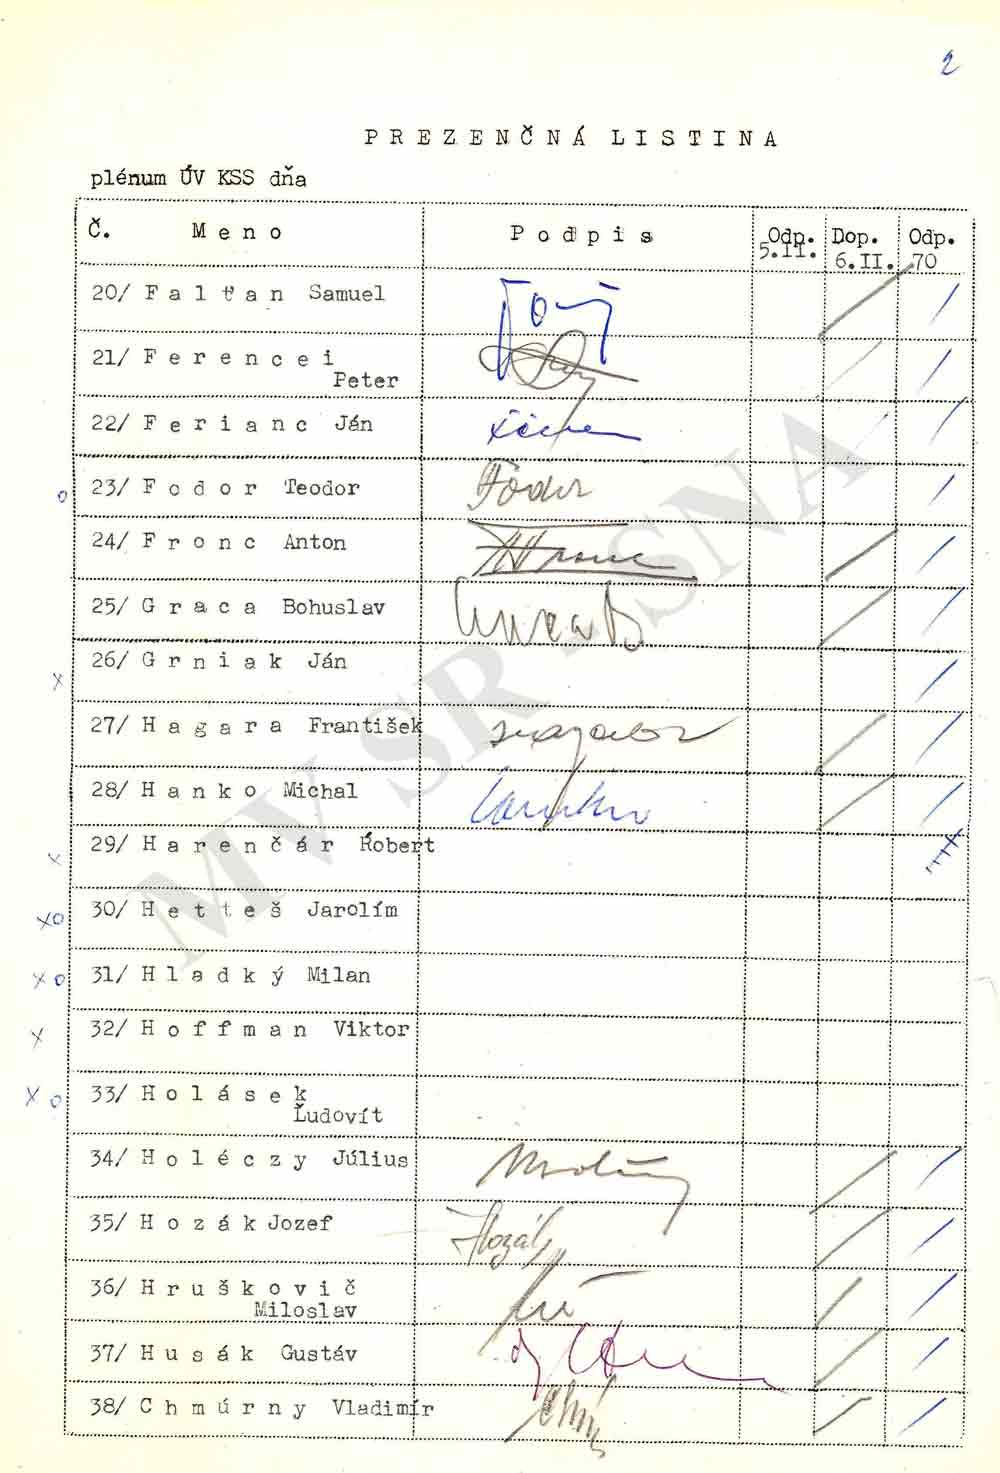 2
PREZENČNÁ LISTINA
plénum ÚV KSS dňa
Č. Meno Podpis Odp. 5.II. Dop. 6.II. Odp. 70
20/ Falťan Samuel
21/ Ferencei
Peter
22/ Ferianc Ján
o 23/ Fodor Teodor Fodor
24/ Fronc Anton Fronc
25/ Graca Bohuslav Graca B
x 26/ Grniak Ján
27/ Hagara František
28/ Hanko Michal
x 29/ Harenčár Róbert
xo 30/ Hetteš Jarolím
xo 31/ Hladký Milan
x 32/ Hoffman Viktor
xo 33/ Holásek
Ľudovít
34/ Holéczy Július
35/ Hozák Jozef Hozák
36/ Hruškovič
Miloslav
37/ Husák Gustáv
38/ Chmúrny Vladimír
MV SR - SNA